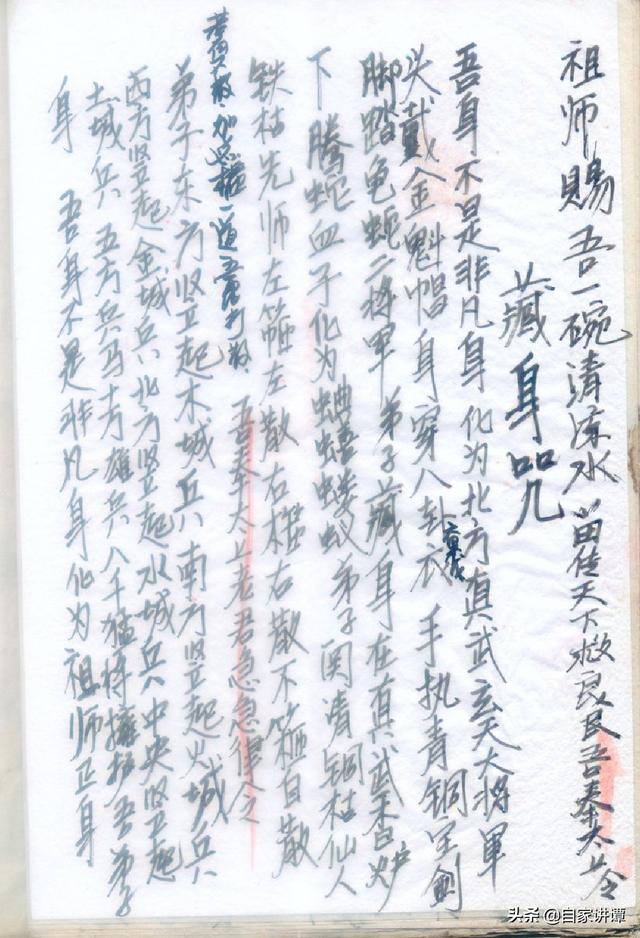 祖师赐吾一碗清凉水 苗传天下救良民吾奉太上令
藏身咒
吾身不是非凡身 化为北方真武玄天大将军
头戴金魁帽 身穿八卦衣 手执青铜宝剑
脚踏龟蛇二将军 弟子藏身在真武香炉
下 腾蛇血子化为蛐蟮蝼蚁 弟子関请铜枯仙人
铁枯先师左箍左散右 右散不箍自散
吾奉太上老君急急律令
弟子东方竖起木城兵 南方竖起火城兵
西方竖起金城兵 北方竖起水城兵 中央竖起
土城兵 五方兵马十方雄兵八千猛将拥护吾弟子
身 吾身不是非凡身 化为祖师正身
头条 @自家讲谭